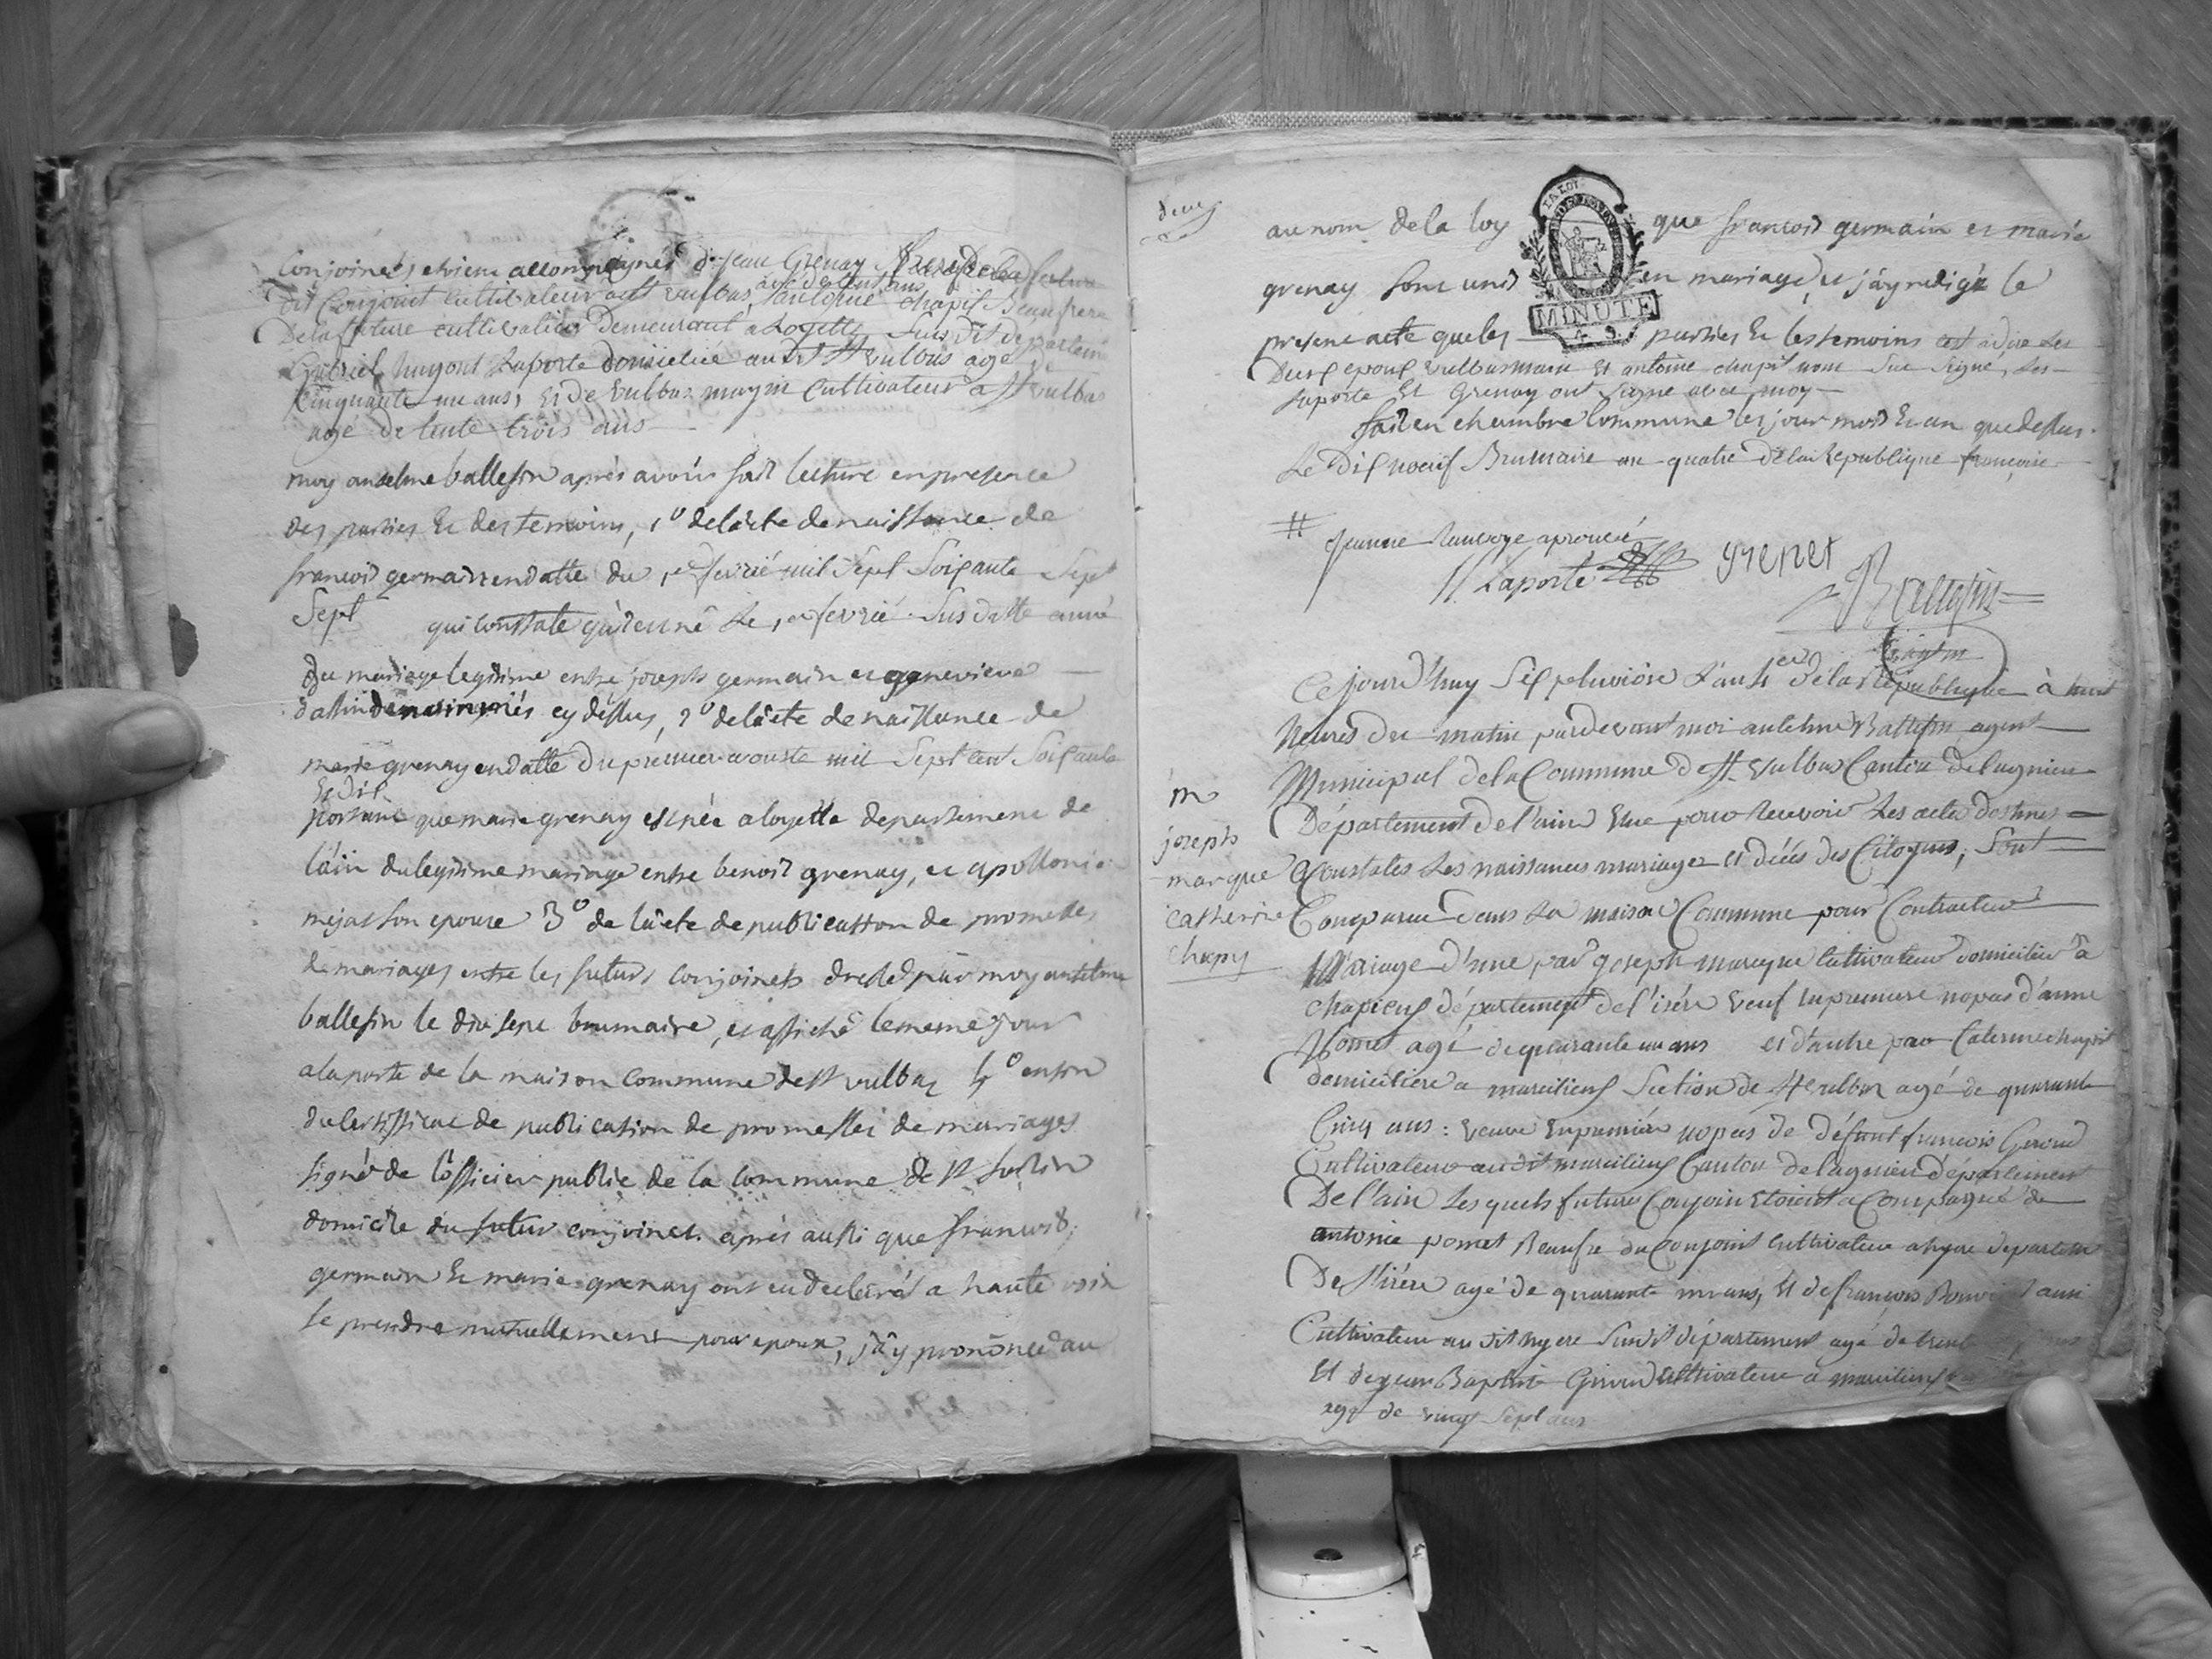 Conjoinets etvient accompagnés de jean Grenay frere de la future
dit Conjoint Cultivateur a St vulbas, agé de trent ans antoine chapit Beaufrere
De la future cultivateur Demeurant a Loyette Susdit departem
Gabriel hugont Laporte domicilié audit St vulbas agé de
Cinquante un ans, Et de vulbas magnin Cultivateur a St vulbas
agé de trente trois ans
moy anselme ballefin aprés avoir fait lecture en presence
des parties Et des temoins, 1º de lacte de naissance de
francois germain en datte du 1er fevrié mil Sept Soixante Sept
Sept qui constate qu'il est né Le 1er fevrié Sus datte anné
du mariage legitime entre joseph germain et genevieve
dassin denommés cy dessus, 2º de lacte de naissance de
marie grenay en datte du premier aouste mil Sept cent Soixante
Et dix
portant que marie grenay est née a loyette departement de
l'ain du legitime mariage entre benoit grenay, et apollonie
mejat son epouse 3º de lacte de publication de promesses
de mariages entre les futurs conjoinets dressé par moy anselme
ballefin le dix sept brumaire, et affiché le meme jour
a la porte de la maison commune de St vulbas 4º enfin
du certifficat de publication de promesses de mariages
signé de lofficier public de la commune de St Sorlin
domicile du futur conjoinet. aprés aussi que francois
germain Et marie grenay ont eu declaré a haute voix
se prendre mutuellement pour epoux, j'ay prononcé au
au nom de la loy que francois germain et marie
grenay sont unis en mariage, et j'ay redigé le
present acte que les parties Et les temoins
Deux epoux vulbas et antoine chapit nont Sue Signé, Les
Laporte Et Grenay ont Signé avec moy
fait en chambre Commune les jour mois Et an que dessus
Le Dix noeuf Brumaire an quatre de la Republique francoise
LA LOI
MINUTE
#
renvoye aprouvé
Laporte grenet
Ballefin
Ce jourd'huy Six pluviôse L'an 4 de la République à huit
heures du matin pardevant moi anselme Ballefin agent
Municipal de la Commune de St. vulbas Canton de lagnieu
Département de l'ain Elue pour recevoir Les actes destinés
a Constater Les naissances mariages et décés des Citoyens, Sont
Comparue dans La maison Commune pour Contracter
m
joseph
marque
catherine
chapy
Mariage d'une par joseph marque Cultivateur domicilier à
département de l'isére veuf en premiere nopas d'anne
agé de quarante un ans et d'autre par Caterine chapit
domiciliere a marcilieux Section de St vulbas agé de quarante
Cinq ans : veuve en premier nopas de défunt francois Giroud
Cultivateur au dit marcilieux Canton de lagnieu département
De l'ain Les quels futurs Conjoin Etoient a Compagné de
antonie pomet Beaufre du Conjoint Cultivateur a hyere departem
De l'isére agé de quarante un ans, Et de françois
Cultivateur au dit hyere Susdit département agé de trent
Et de jean Baptiste Giroud Cultivateur a marcilieux
agé de vingt Sept ans